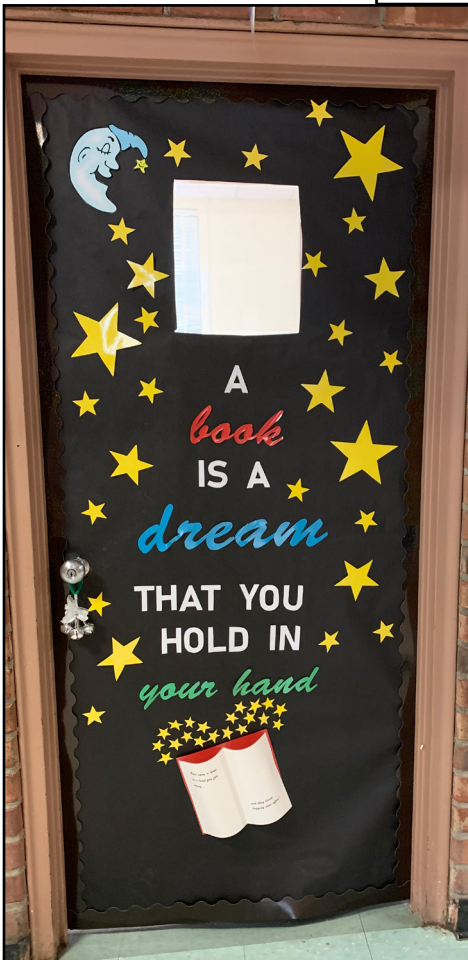 A
book
IS A
dream
THAT YOU
HOLD IN
your hand